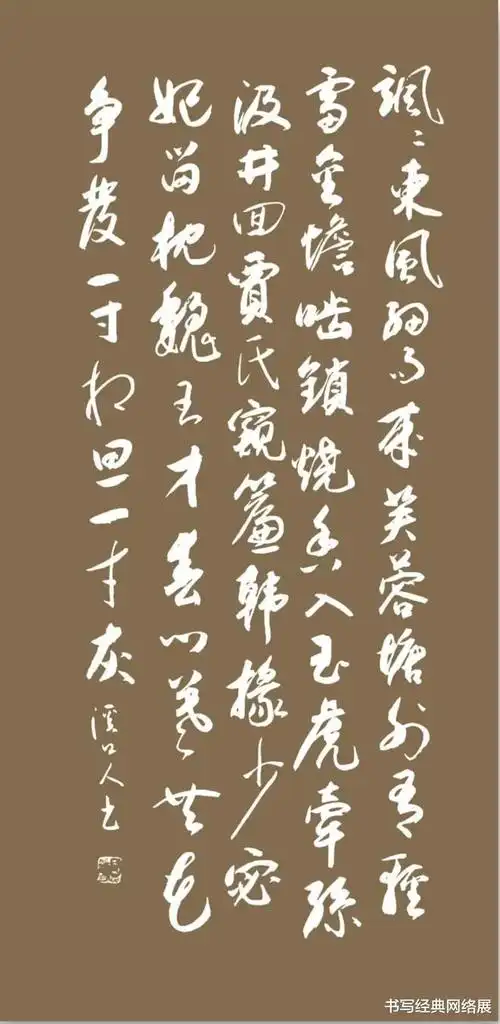 飒々东风细雨来芙蓉塘外有轻
雷金蟾啮锁烧香入玉虎牵丝
汲井回贾氏窥帘韩掾少宓
妃留枕魏王才春心莫共花
争发一寸相思一寸灰
溪口人书
书写经典网络展